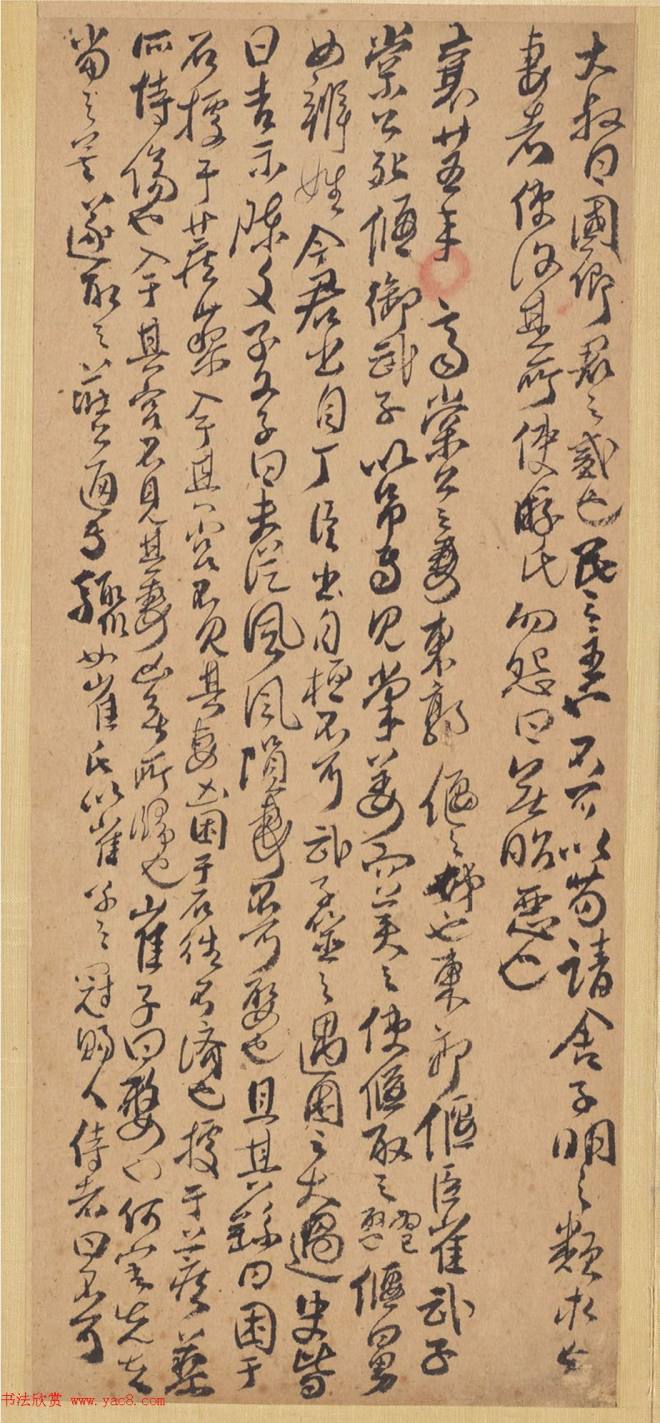 大叔曰国卿君之贰也民之主也不可以苟请舍子明之类求亡
妻者使复其所使游氏勿怨曰无昭恶也
襄廿五年 齐棠公之妻東郭偃之姊也東郭偃臣崔武子
棠公死偃御武子以吊焉見棠姜而美之使偃取之偃曰男
女辨姓今君出自丁臣出自桓不可武子筮之遇困之大過史皆
曰吉示陳文子文子曰夫從風風隕妻不可娶也且其繇曰困于
石據于蒺藜入于其宮不見其妻凶困于石往不濟也據于蒺藜
所恃傷也入于其宮不見其妻凶無所歸也崔子曰嫠也何害先夫
當之矣遂取之莊公通焉驟如崔氏以崔子之冠賜人侍者曰不可
书法欣赏 www.yac8.com